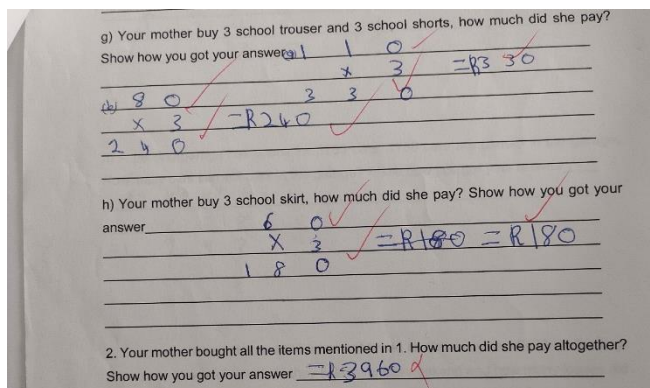 g) Your mother buy 3 school trouser and 3 school shorts, how much did she pay?
Show how you got your answer(a) 1 1 0
x 3 =R330
3 3 0
(b) 8 0
x 3 =R240
2 4 0
h) Your mother buy 3 school skirt, how much did she pay? Show how you got your
answer 6 0
x 3 =R180 =R180
1 8 0
2. Your mother bought all the items mentioned in 1. How much did she pay altogether?
Show how you got your answer =R3960